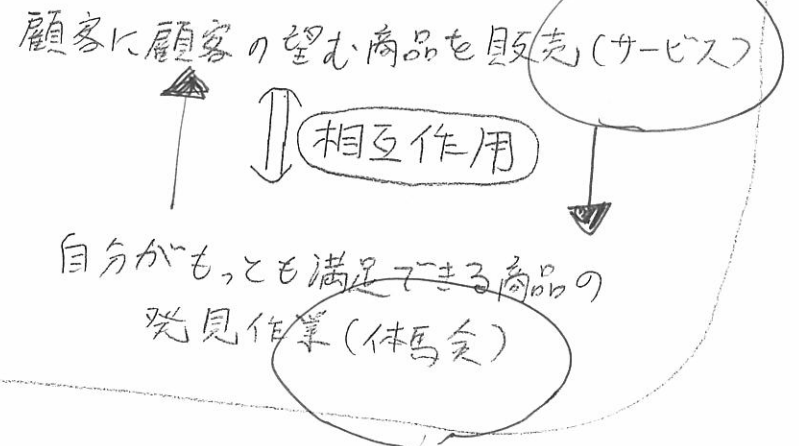 顧客に顧客の望む商品を販売(サービス)
相互作用
自分がもっとも満足できる商品の
発見作業(体験)